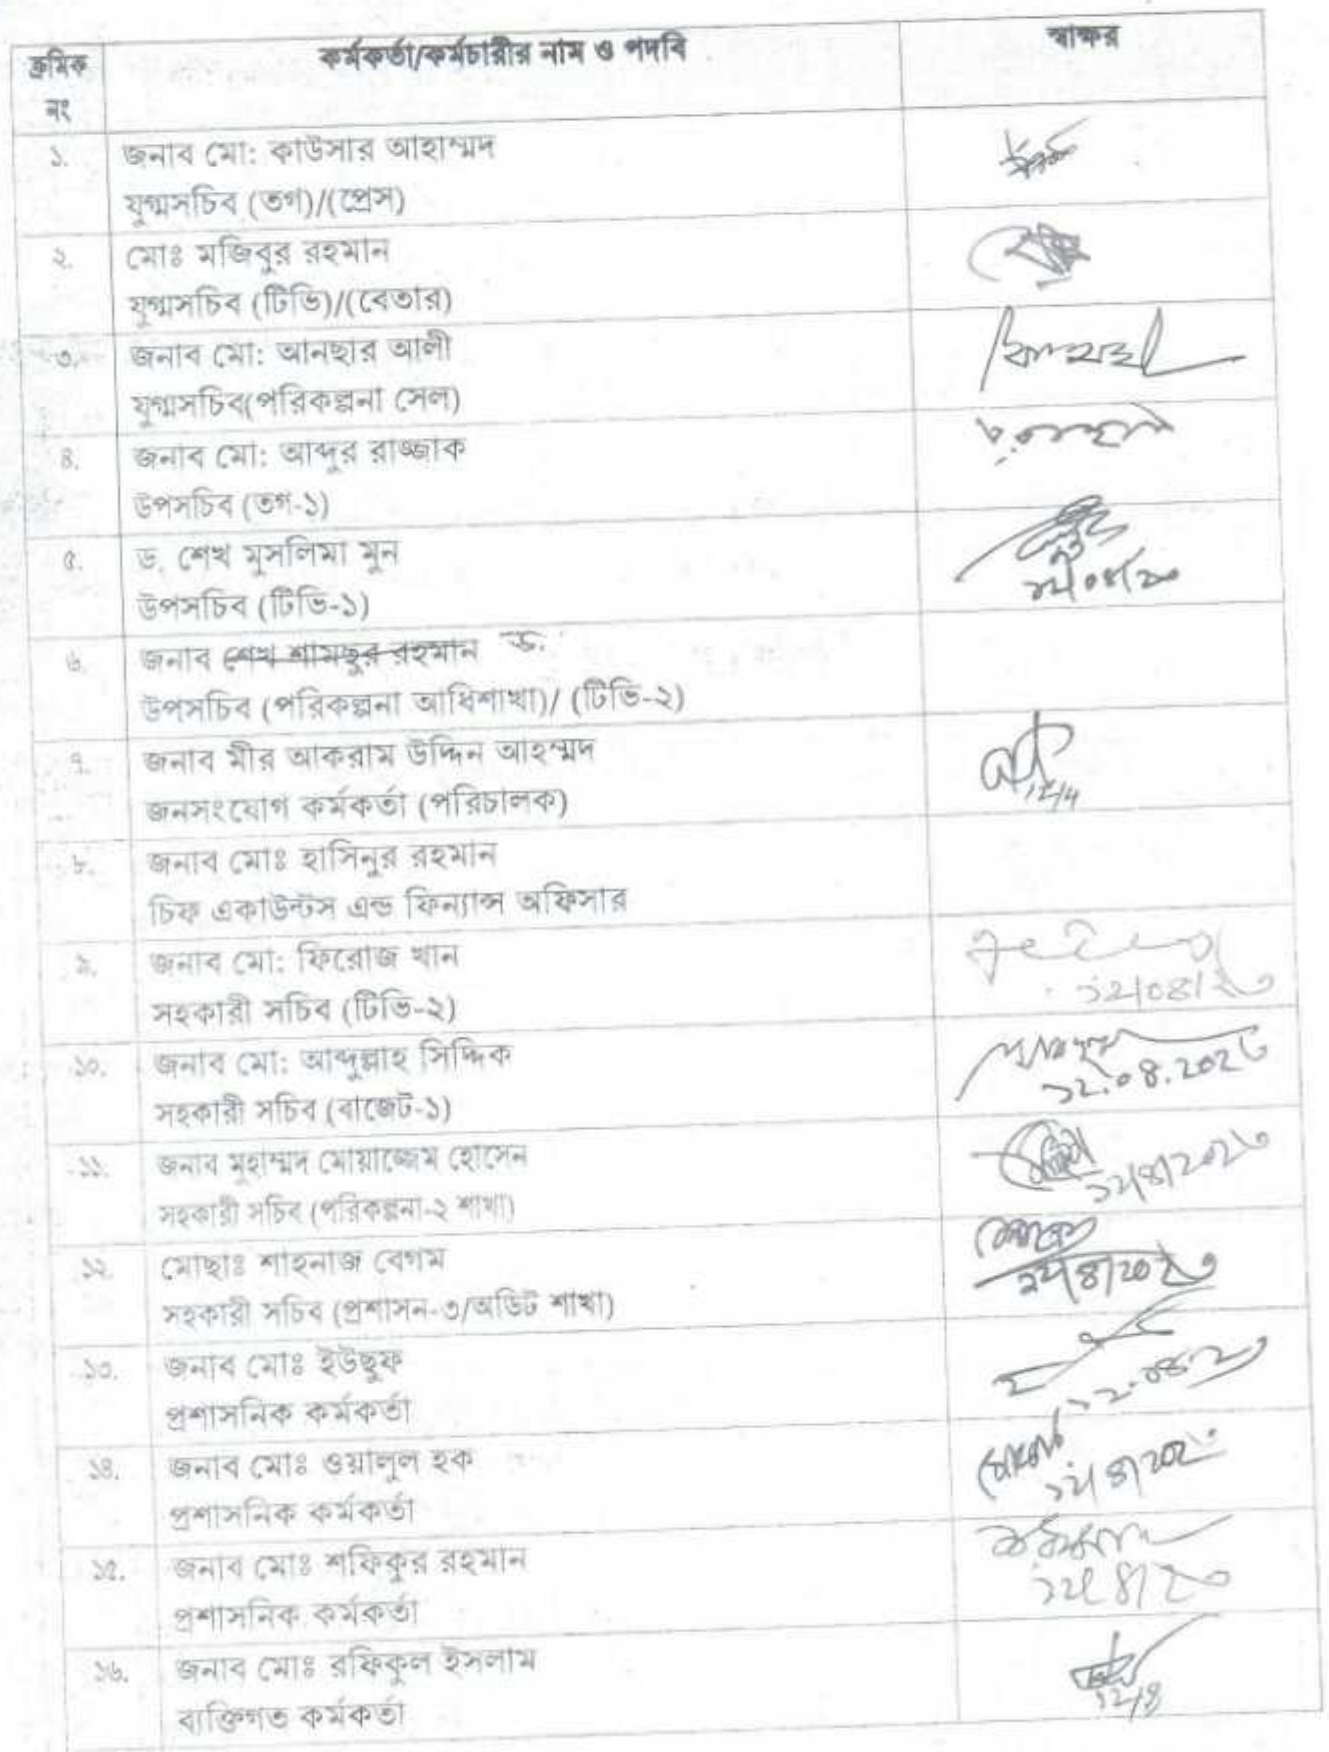 ক্রমিক নং
কর্মকর্তা/কর্মচারীর নাম ও পদবি
স্বাক্ষর
১. জনাব মো: কাউসার আহাম্মদ
যুগ্মসচিব (তগ)/(প্রেস)
২. মোঃ মজিবুর রহমান
যুগ্মসচিব (টিভি)/(বেতার)
৩. জনাব মো: আনছার আলী
যুগ্মসচিব(পরিকল্পনা সেল)
৪. জনাব মো: আব্দুর রাজ্জাক
উপসচিব (তগ-১)
৫. ড. শেখ মুসলিমা মুন
উপসচিব (টিভি-১)
১২/০৪/২০
৬. জনাব শেখ শামছুর রহমান ড.
উপসচিব (পরিকল্পনা আধিশাখা)/ (টিভি-২)
৭. জনাব মীর আকরাম উদ্দিন আহম্মদ
জনসংযোগ কর্মকর্তা (পরিচালক)
12/4
৮. জনাব মোঃ হাসিনুর রহমান
চিফ একাউন্টস এন্ড ফিন্যান্স অফিসার
৯. জনাব মো: ফিরোজ খান
সহকারী সচিব (টিভি-২)
১২/০৪/২৩
১০. জনাব মো: আব্দুল্লাহ সিদ্দিক
সহকারী সচিব (বাজেট-১)
১২.০৪.২০২৩
১১. জনাব মুহাম্মদ মোয়াজ্জেম হোসেন
সহকারী সচিব (পরিকল্পনা-২ শাখা)
১২/৪/২০২৩
১২. মোছাঃ শাহনাজ বেগম
সহকারী সচিব (প্রশাসন-৩/অডিট শাখা)
১২/৪/২০২৩
১৩. জনাব মোঃ ইউছুফ
প্রশাসনিক কর্মকর্তা
১২.০৪.২৩
১৪. জনাব মোঃ ওয়ালুল হক
প্রশাসনিক কর্মকর্তা
১২/৪/২০২৩
১৫. জনাব মোঃ শফিকুর রহমান
প্রশাসনিক কর্মকর্তা
১২/৪/২৩
১৬. জনাব মোঃ রফিকুল ইসলাম
ব্যক্তিগত কর্মকর্তা
১২/৪